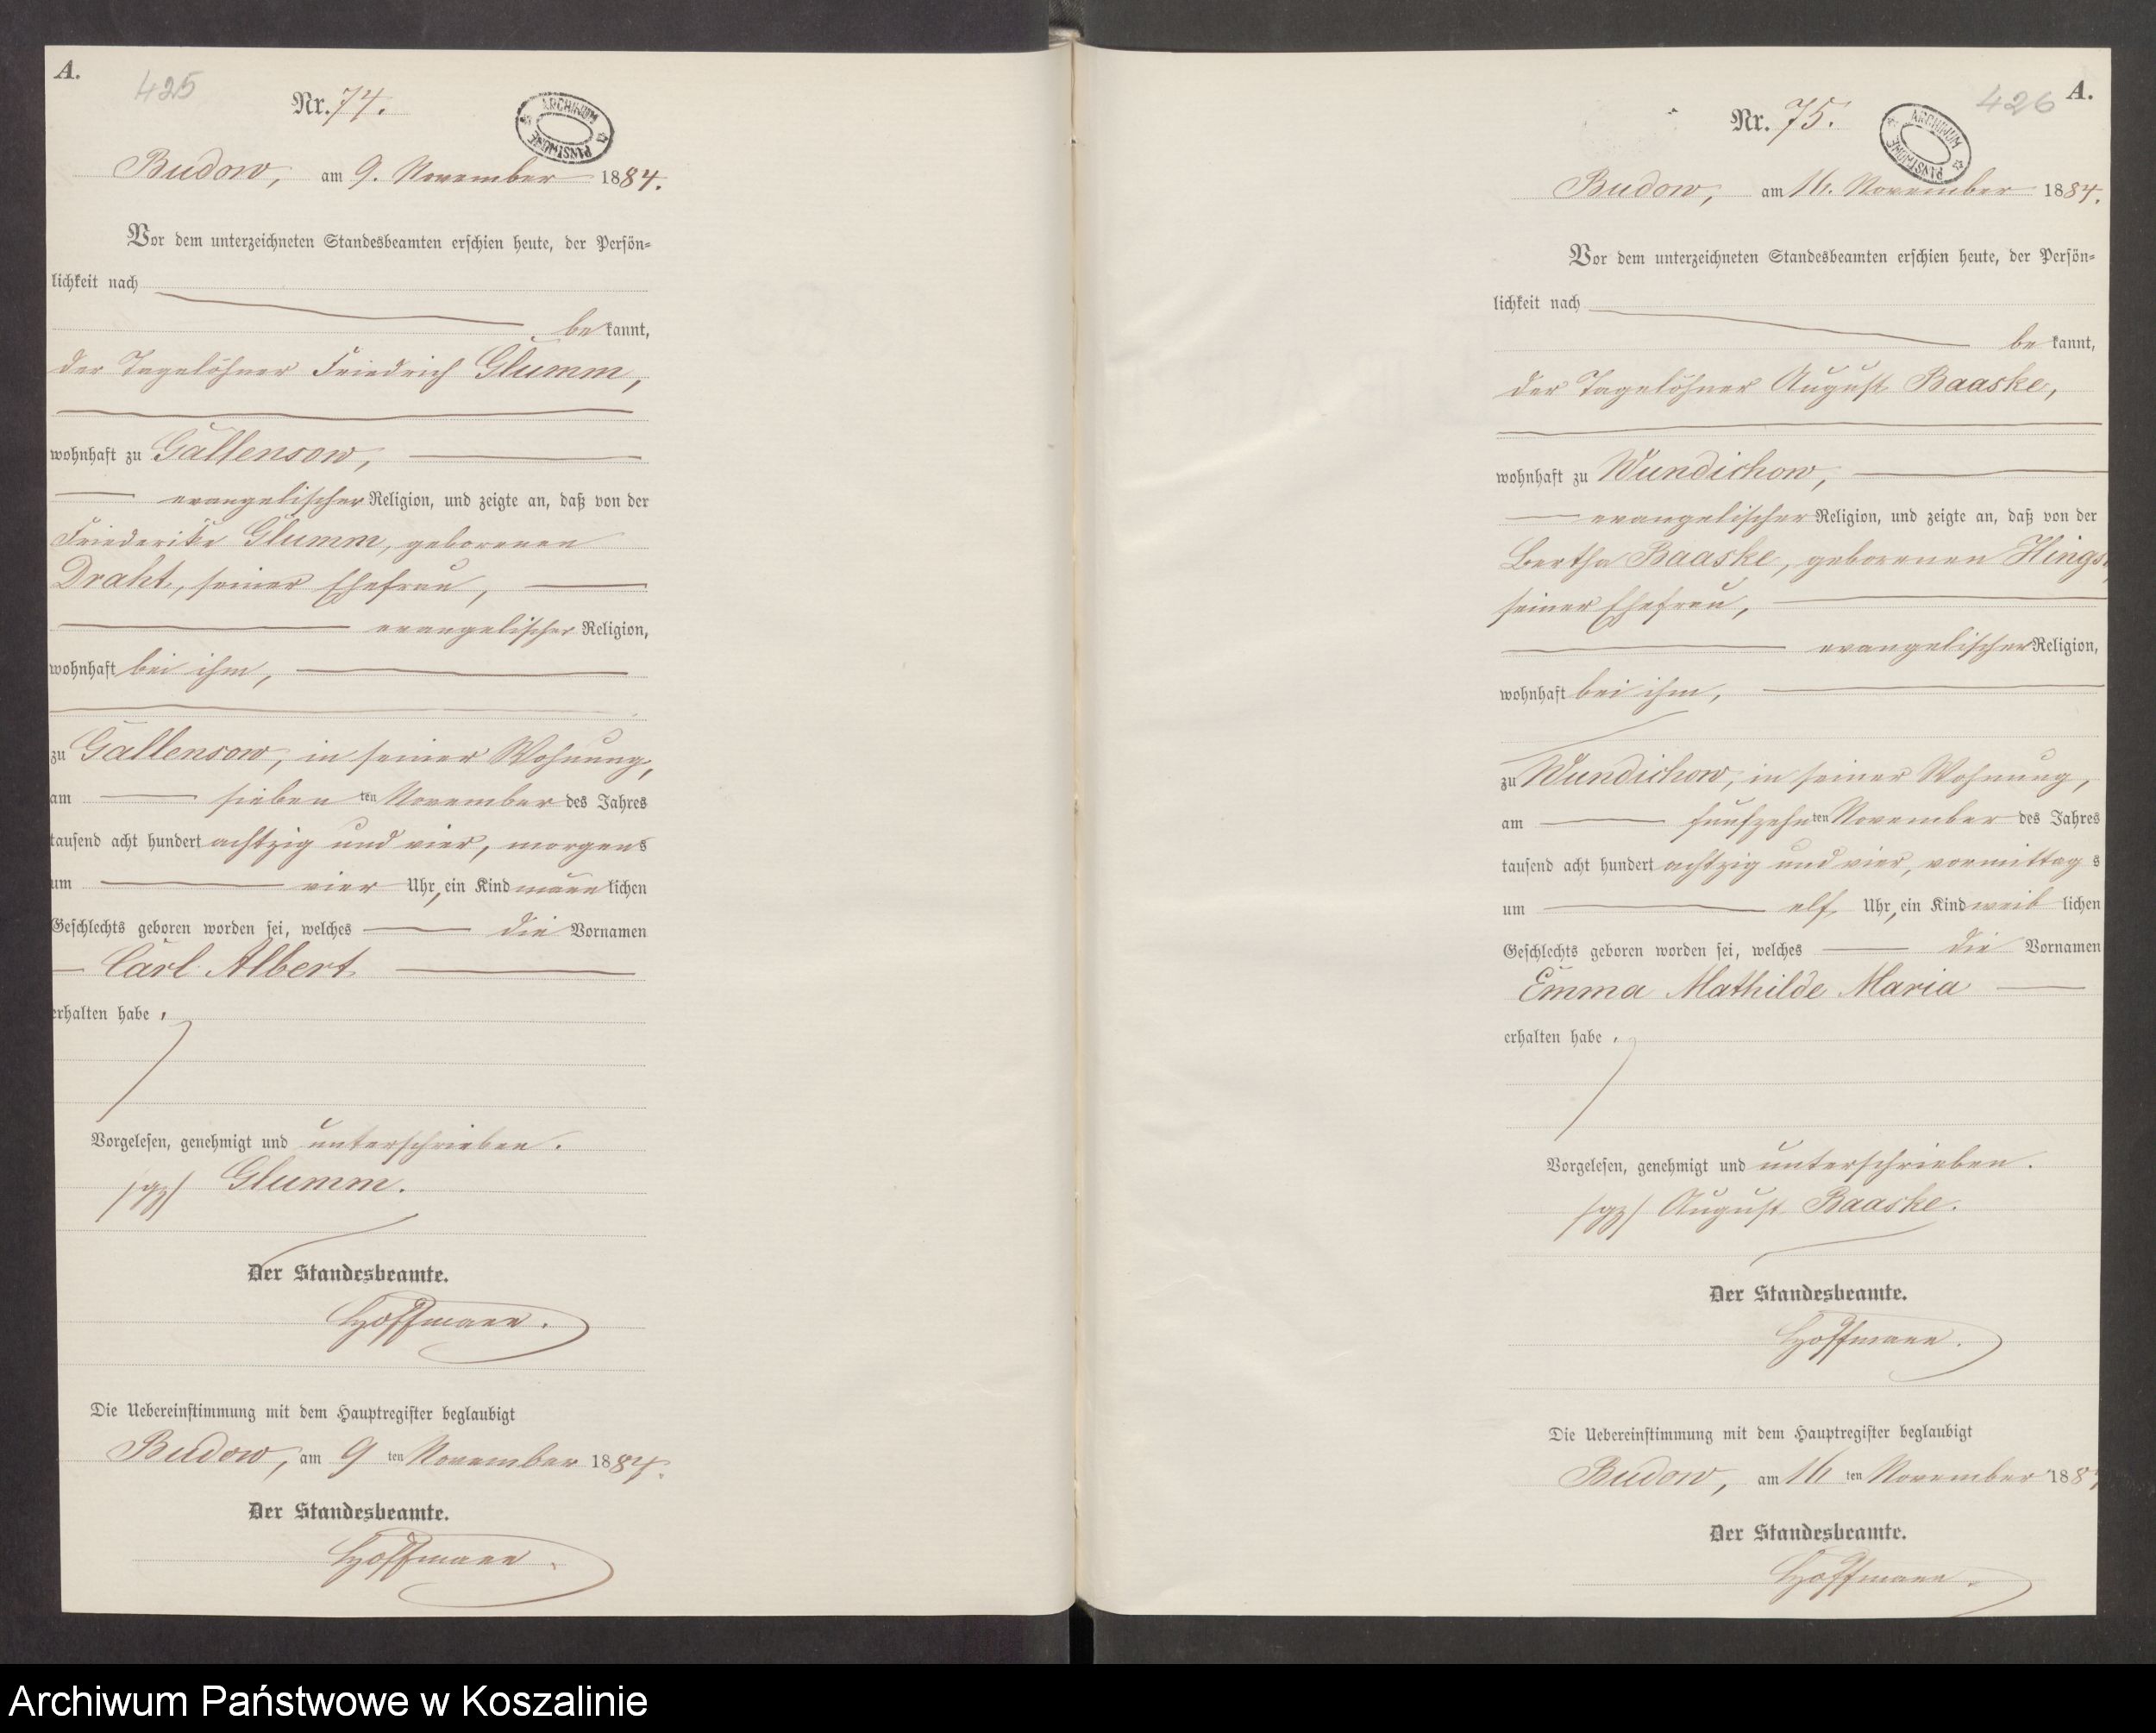 A.
425
Nr. 74.
ARCHIWUM PAŃSTWOWE
Budow, am 9. November 1884.
Vor dem unterzeichneten Standesbeamten erschien heute, der Persön-
lichkeit nach
bekannt,
der Tagelöhner Friedrich Glumm,
wohnhaft zu Gallensow,
evangelischer Religion, und zeigte an, daß von der
Friederike Glumm, geborenen
Draht, seiner Ehefrau,
evangelischer Religion,
wohnhaft bei ihm,
zu Gallensow, in seiner Wohnung,
am sieben ten November des Jahres
tausend acht hundert achtzig und vier, morgens
um vier Uhr, ein Kind männlichen
Geschlechts geboren worden sei, welches die Vornamen
Carl Albert
erhalten habe.
Vorgelesen, genehmigt und unterschrieben.
/gz/ Glumm.
Der Standesbeamte.
Hoffmann.
Die Uebereinstimmung mit dem Hauptregister beglaubigt
Budow, am 9 ten November 1884.
Der Standesbeamte.
Hoffmann.
A.
426
Nr. 75.
ARCHIWUM PAŃSTWOWE
Budow, am 16. November 1884.
Vor dem unterzeichneten Standesbeamten erschien heute, der Persön-
lichkeit nach
bekannt,
der Tagelöhner August Baaske,
wohnhaft zu Wundichow,
evangelischer Religion, und zeigte an, daß von der
Bertha Baaske, geborenen Hings,
seiner Ehefrau,
evangelischer Religion,
wohnhaft bei ihm,
zu Wundichow, in seiner Wohnung,
am fünfzehn ten November des Jahres
tausend acht hundert achtzig und vier, vormittags
um elf Uhr, ein Kind weiblichen
Geschlechts geboren worden sei, welches die Vornamen
Emma Mathilde Maria
erhalten habe.
Vorgelesen, genehmigt und unterschrieben.
/gz/ August Baaske.
Der Standesbeamte.
Hoffmann.
Die Uebereinstimmung mit dem Hauptregister beglaubigt
Budow, am 16 ten November 188
Der Standesbeamte.
Hoffmann.
Archiwum Państwowe w Koszalinie